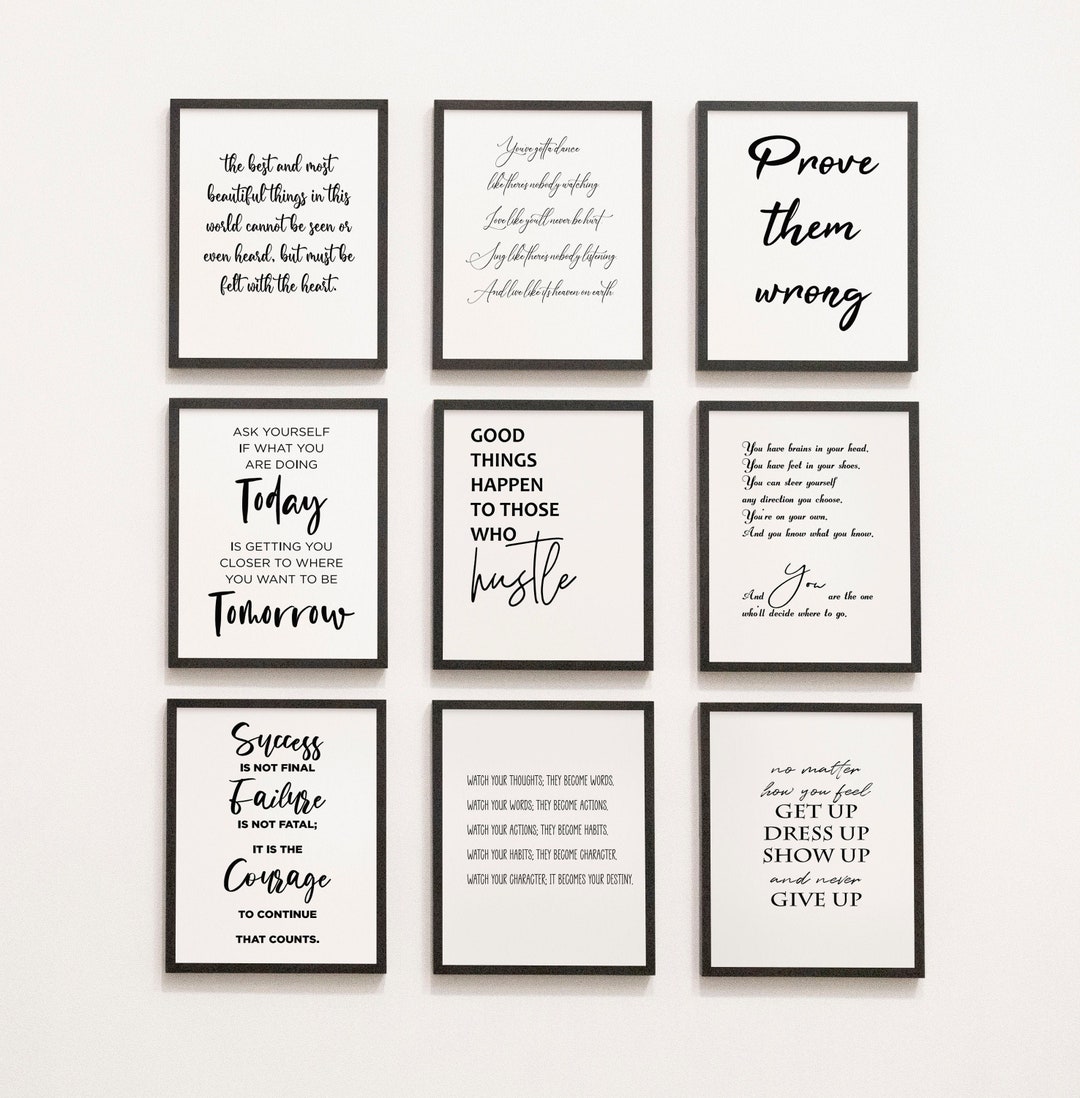 the best and most
beautiful things in this
world cannot be seen or
even heard, but must be
felt with the heart.
Youve gotta dance
like theres nobody watching
Love like youll never be hurt
Sing like theres nobody listening
And live like its heaven on earth
Prove
them
wrong
ASK YOURSELF
IF WHAT YOU
ARE DOING
Today
IS GETTING YOU
CLOSER TO WHERE
YOU WANT TO BE
Tomorrow
GOOD
THINGS
HAPPEN
TO THOSE
WHO
hustle
You have brains in your head.
You have feet in your shoes.
You can steer yourself
any direction you choose.
You're on your own.
And you know what you know.
And You are the one
who'll decide where to go.
Success
IS NOT FINAL
Failure
IS NOT FATAL;
IT IS THE
Courage
TO CONTINUE
THAT COUNTS.
WATCH YOUR THOUGHTS; THEY BECOME WORDS.
WATCH YOUR WORDS; THEY BECOME ACTIONS.
WATCH YOUR ACTIONS; THEY BECOME HABITS.
WATCH YOUR HABITS; THEY BECOME CHARACTER.
WATCH YOUR CHARACTER; IT BECOMES YOUR DESTINY.
no matter
how you feel
GET UP
DRESS UP
SHOW UP
and never
GIVE UP